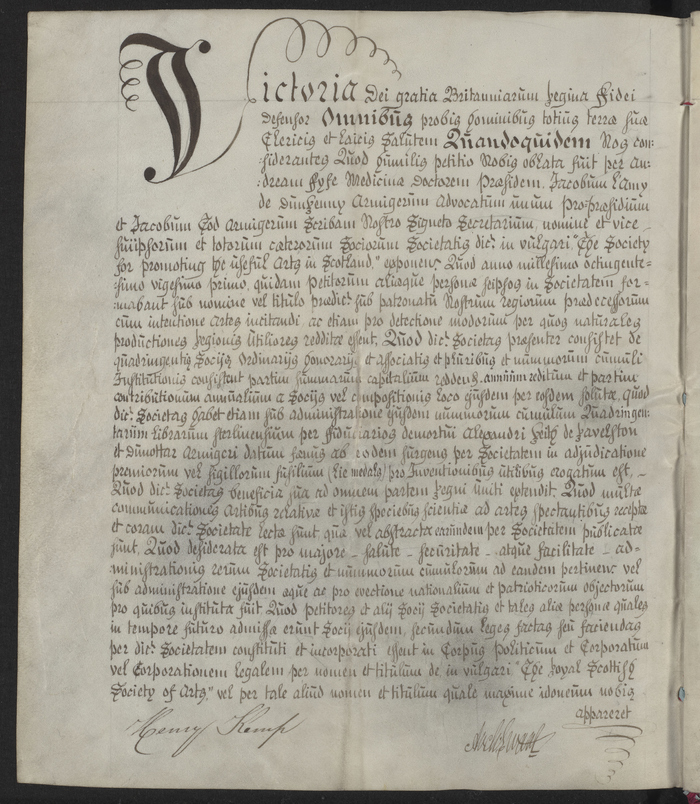 Victoria Dei gratia Britanniarum Regina Fidei
defensor Omnibus probis hominibus totius terræ suæ
Clericis et Laicis Salutem Quandoquidem Nos con:
:siderantes Quod humilis petitio Nobis oblata fuit per An:
:dream Fyfe Medicinæ Doctorem Præsidem, Jacobum L'Amy
de Dunkenny Armigerum Advocatum unum Pro:præsidium
et Jacobum Tod Armigerum Scribam Nostro Signeto Secretarium, nomine et vice
suiipsorum et totorum cæterorum Sociorum Societatis dict. in vulgari "The Society
for promoting the useful Arts in Scotland," exponen. Quod anno millesimo octingente=
:simo vigesimo primo, quidam Petitorum aliæque personæ seipsos in Societatem for=
:mabant sub nomine vel titulo prædict. sub patronatu Nostrum regiorum prædecessorum
cum intentione Artes incitandi, ac etiam pro detectione modorum per quos naturales
productiones Regionis utiliores redditæ essent, Quod dict. Societas præsenter consistet de
quadringentis Socijs Ordinarijs honorarijs et associatis et pluribus et nummorum cumuli
Institutionis consistent partim summarum capitalium redden. annuum reditum et partim
contributionum annualium a Socijs vel compositionis loco ejusdem per eosdem solutæ, quod
dict. Societas habet etiam sub administratione ejusdem nummorum cumulum Quadringen:
tarum librarum sterlinensium per fiduciarios demortui Alexandri Keith de Ravelston
et Dunottar Armigeri datum fœnus ab eodem surgens per Societatem in adjudicatione
præmiorum vel sigillorum fusilium (Lie medals) pro Inventionibus utilibus erogatum est, _
Quod dict. Societas beneficia sua ad omnem partem Regni Uniti extendit, Quod multæ
communicationes Artibus relativæ et istis speciebus scientiæ ad artes spectantibus receptæ
et coram dict. Societate lectæ sunt quæ vel abstracta earundem per Societatem publicatæ
sunt, Quod desiderata est pro majore _ salute _ securitate _ atque facilitate _ ad=
ministrationis rerum Societatis et nummorum cumulorum ad eandem pertinen. vel
sub administratione ejusdem æque ac pro evectione nationalium et patrioticorum objectorum
pro quibus instituta fuit Quod petitores et alij Socij Societatis et tales aliæ personæ quales
in tempore futuro admissæ erunt Socij ejusdem, secundum leges factas seu faciendas
per dict. Societatem constituti et incorporati essent in Corpus Politicum et Corporatum
vel Corporationem Legalem per nomen et titulum de in vulgari "The Royal Scottish
Society of Arts," vel per tale aliud nomen et titulum quale maxime idoneum nobis
appareret
Henry Kemp